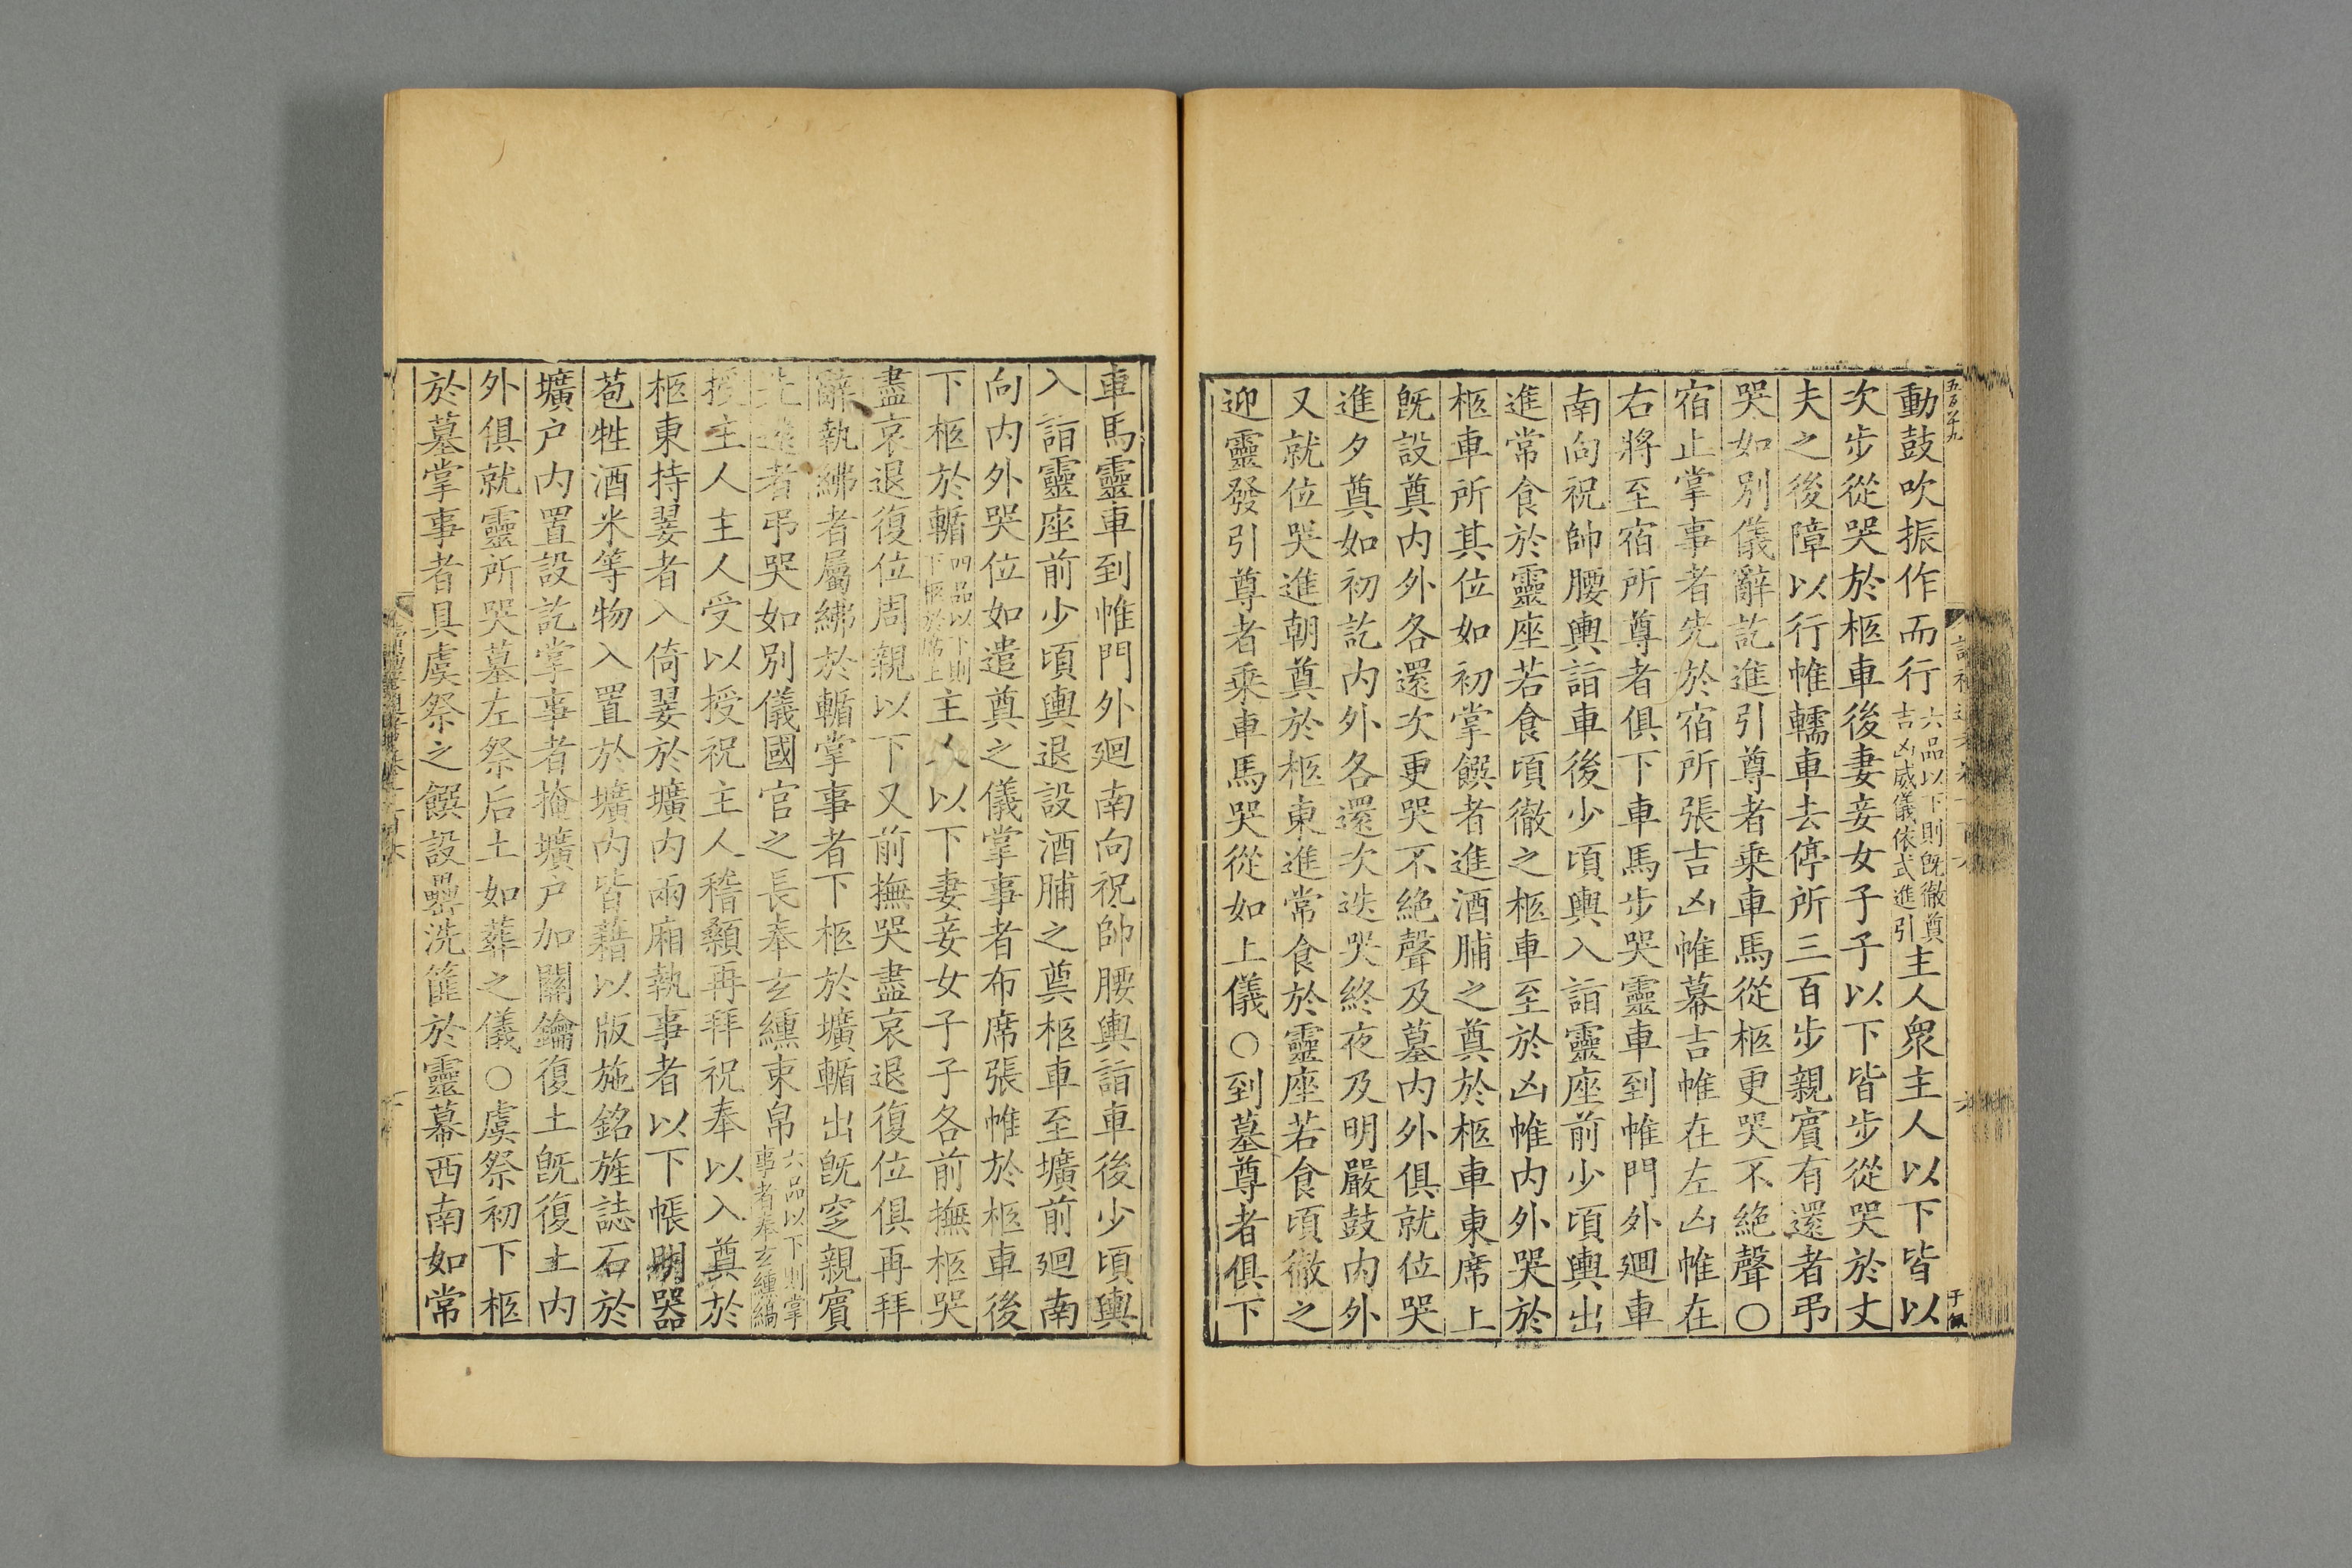 動鼓吹振作而行六品以下則旣徹奠吉凶威儀依式進引主人衆主人以下皆以
次步從哭於柩車後妻妾女子子以下皆步從哭於丈
夫之後障以行帷轜車去停所三百步親賓有還者弔
哭如別儀辭訖進引尊者乗車馬從柩更哭不絶聲○
宿止掌事者先於宿所張吉凶帷幕吉帷在左凶帷在
右將至宿所尊者俱下車馬步哭靈車到帷門外廻車
南向祝帥腰輿詣車後少頃輿入詣靈座前少頃輿出
進常食於靈座若食頃徹之柩車至於凶帷内外哭於
柩車所其位如初掌饌者進酒脯之奠於柩車東席上
旣設奠内外各還次更哭不絶聲及墓内外俱就位哭
進夕奠如初訖内外各還次迭哭終夜及明嚴鼓内外
又就位哭進朝奠於柩東進常食於靈座若食頃徹之
迎靈發引尊者乗車馬哭從如上儀○到墓尊者俱下
車馬靈車到帷門外廻南向祝帥腰輿詣車後少頃輿
入詣靈座前少頃輿退設酒脯之奠柩車至壙前廻南
向内外哭位如遣奠之儀掌事者布席張帷於柩車後
下柩於輴四品以下則下柩於席上主人以下妻妾女子子各前撫柩哭
盡哀退復位周親以下又前撫哭盡哀退復位俱再拜
辭執紼者屬紼於輴掌事者下柩於壙輴出旣窆親賓
先還者弔哭如別儀國官之長奉玄纁束帛六品以下則掌事者奉玄纁編
授主人主人受以授祝主人稽顙再拜祝奉以入奠於
柩東持翣者入倚翣於壙内兩廂執事者以下帳明器
苞牲酒米等物入置於壙内皆藉以版施銘旌誌石於
壙户内置設訖掌事者掩壙户加關鑰復土旣復土内
外俱就靈所哭墓左祭后土如葬之儀○虞祭初下柩
於墓掌事者具虞祭之饌設罍洗篚於靈幕西南如常